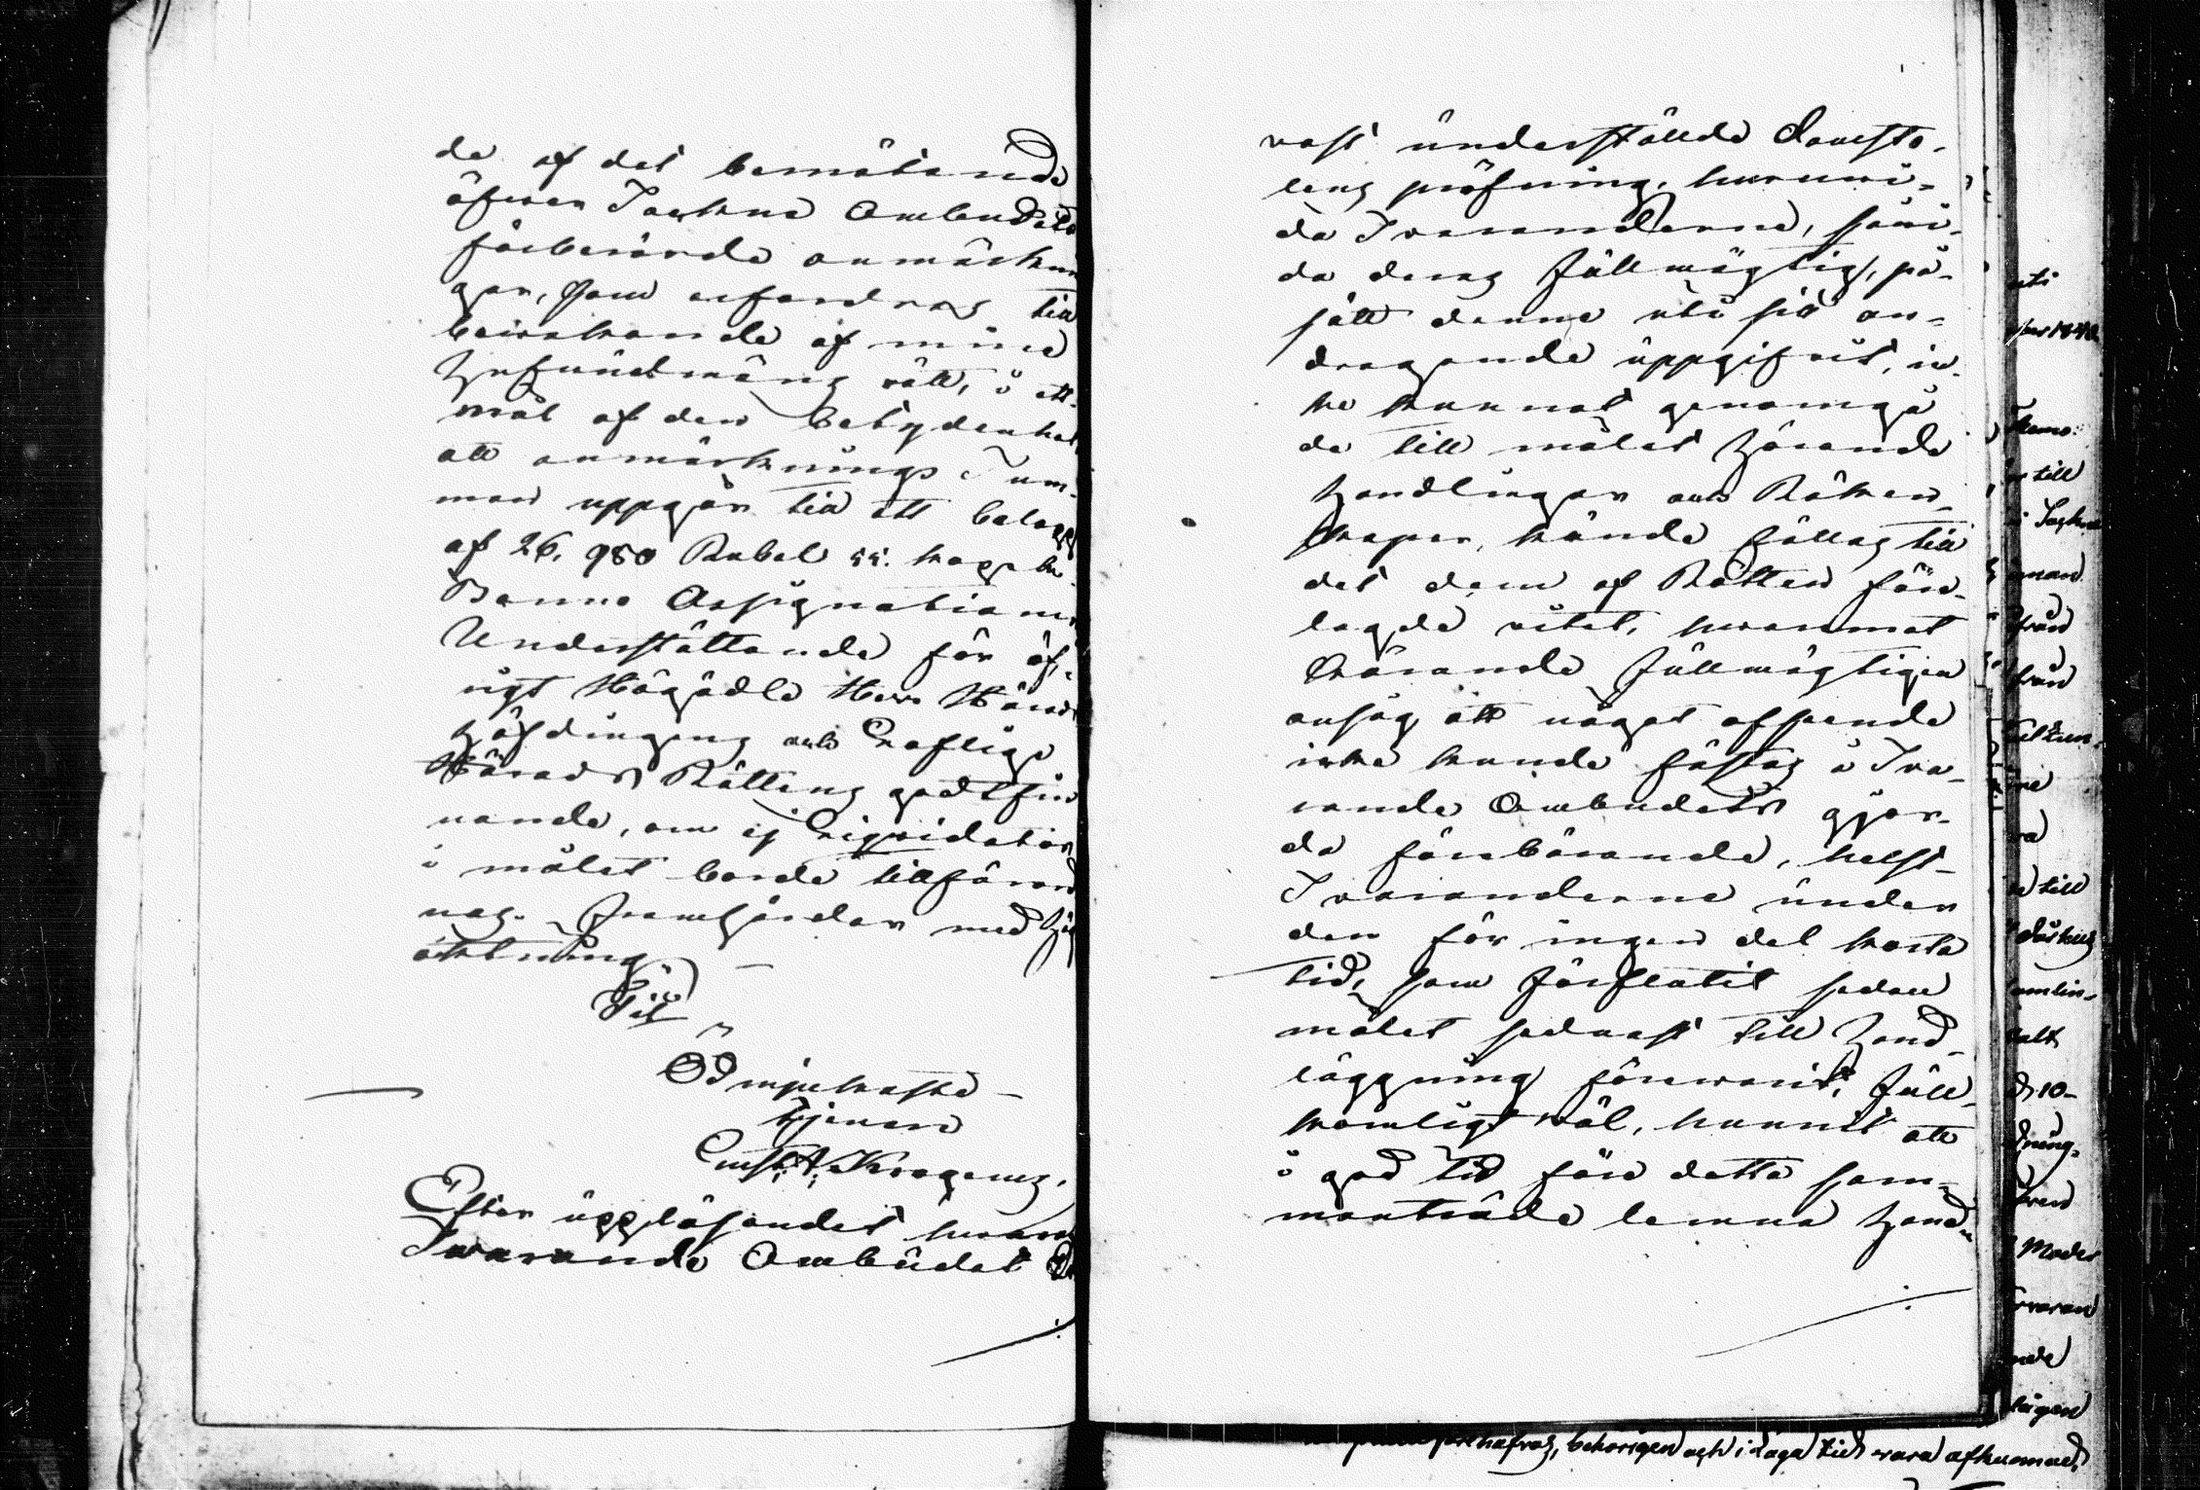 de af det bemötande
öfver Sackne Ombudets
förberörde anmärknin
gar, som erfordras till
bevakande af mine
Hufvudmäns rätt, i ett
mål af den betydenhet
att anmärknings Sum-
man uppgår till ett belopp
af 26,980 Rubel 55. kop. i
Banco Assignationer
Underställande för öf-
rigt Högädle Herr Härads
Höfdingens och Loflige
Härads Rättens godtfin
nande, om ej Liquidation
i målet borde tillförord
nas. Framhärdar med Hög
aktning
Ödmjukaste
tjenare
Ernst A. Krogerus.
Efter uppläsandet hwaraf
Swarande Ombudet
rast underställde Domsto-
lens pröfning, huruwi-
da Swaranderne, såwi-
da deras Fullmägtig, på
sätt denne uti sitt an-
dragande uppgifvit, ic-
ke kunnat genomgå
de till målet hörande
Handlingar och Räken-
skaper, kunde fällas till
det dem af Rätten före-
lagde vitet, hwaremot
Kärande Fullmägtigen
ansåg att något afseende
icke kunde fästas å Swa-
rande Ombudets gjor-
da förebärande, helst
Swaranderne under
den för ingen del korta
tid, som förflutit sedan
målet sednast till Hand-
läggning förewarit, full-
komligt wäl, hunnit att
i god tid före detta sam-
manträde lemna Hand-
behörigen och i laga tid vara afkunnad,